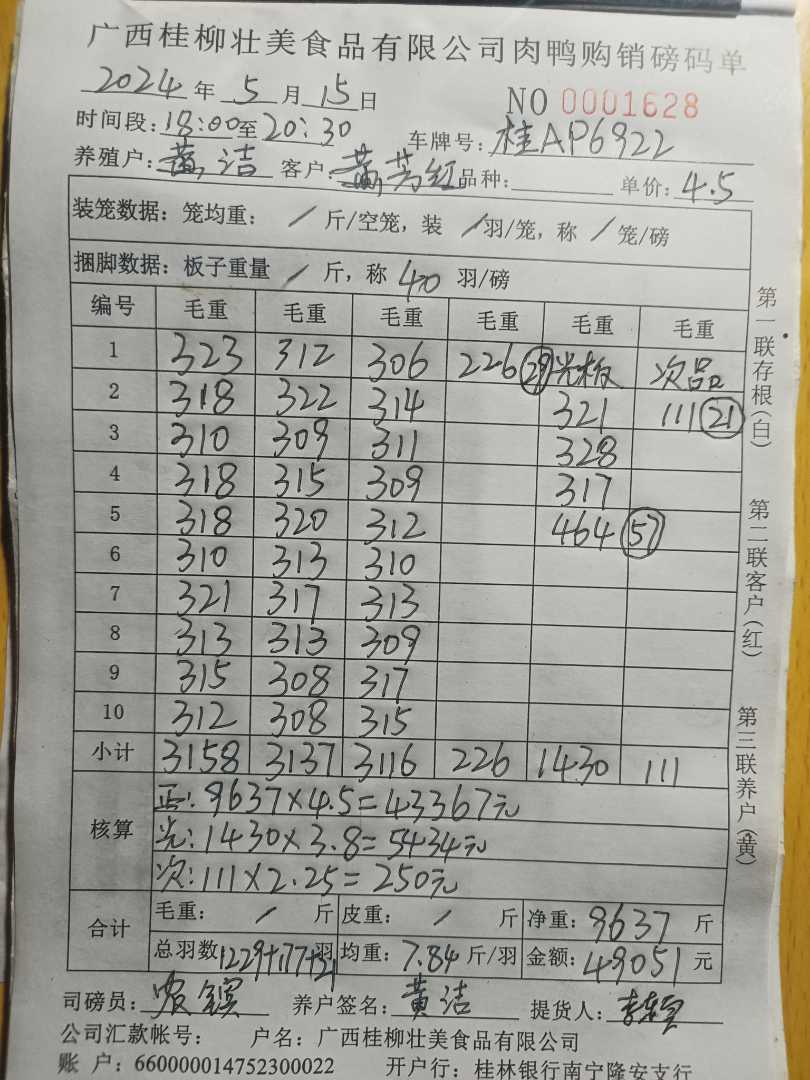 广西桂柳壮美食品有限公司肉鸭购销磅码单
2024年5月15日 NO 0001628
时间段:18:00至20:30 车牌号:桂AP6922
养殖户:黄洁 客户:黄芳红 品种: 单价:4.5
装笼数据:笼均重: / 斤/空笼,装 / 羽/笼,称 / 笼/磅
捆脚数据:板子重量 / 斤,称 40 羽/磅
编号 毛重 毛重 毛重 毛重 毛重 毛重
1 323 312 306 226 29 光板 次品
2 318 322 314 321 111 21
3 310 309 311 328
4 318 315 309 317
5 318 320 312 464 57
6 310 313 310
7 321 317 313
8 313 313 309
9 315 308 317
10 312 308 315
小计 3158 3137 3116 226 1430 111
核算
正:9637×4.5=43367元
光:1430×3.8=5434元
次:111×2.25=250元
合计
毛重: / 斤 皮重: / 斤 净重:9637 斤
总羽数1229+177+21羽 均重:7.84 斤/羽 金额:49051 元
司磅员: 养户签名:黄洁 提货人:
公司汇款帐号: 户名:广西桂柳壮美食品有限公司
账 户:660000014752300022 开户行:桂林银行南宁隆安支行
第一联存根(白)
第二联客户(红)
第三联养户(黄)